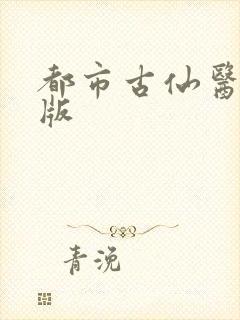 都市古仙醫
版
青浼